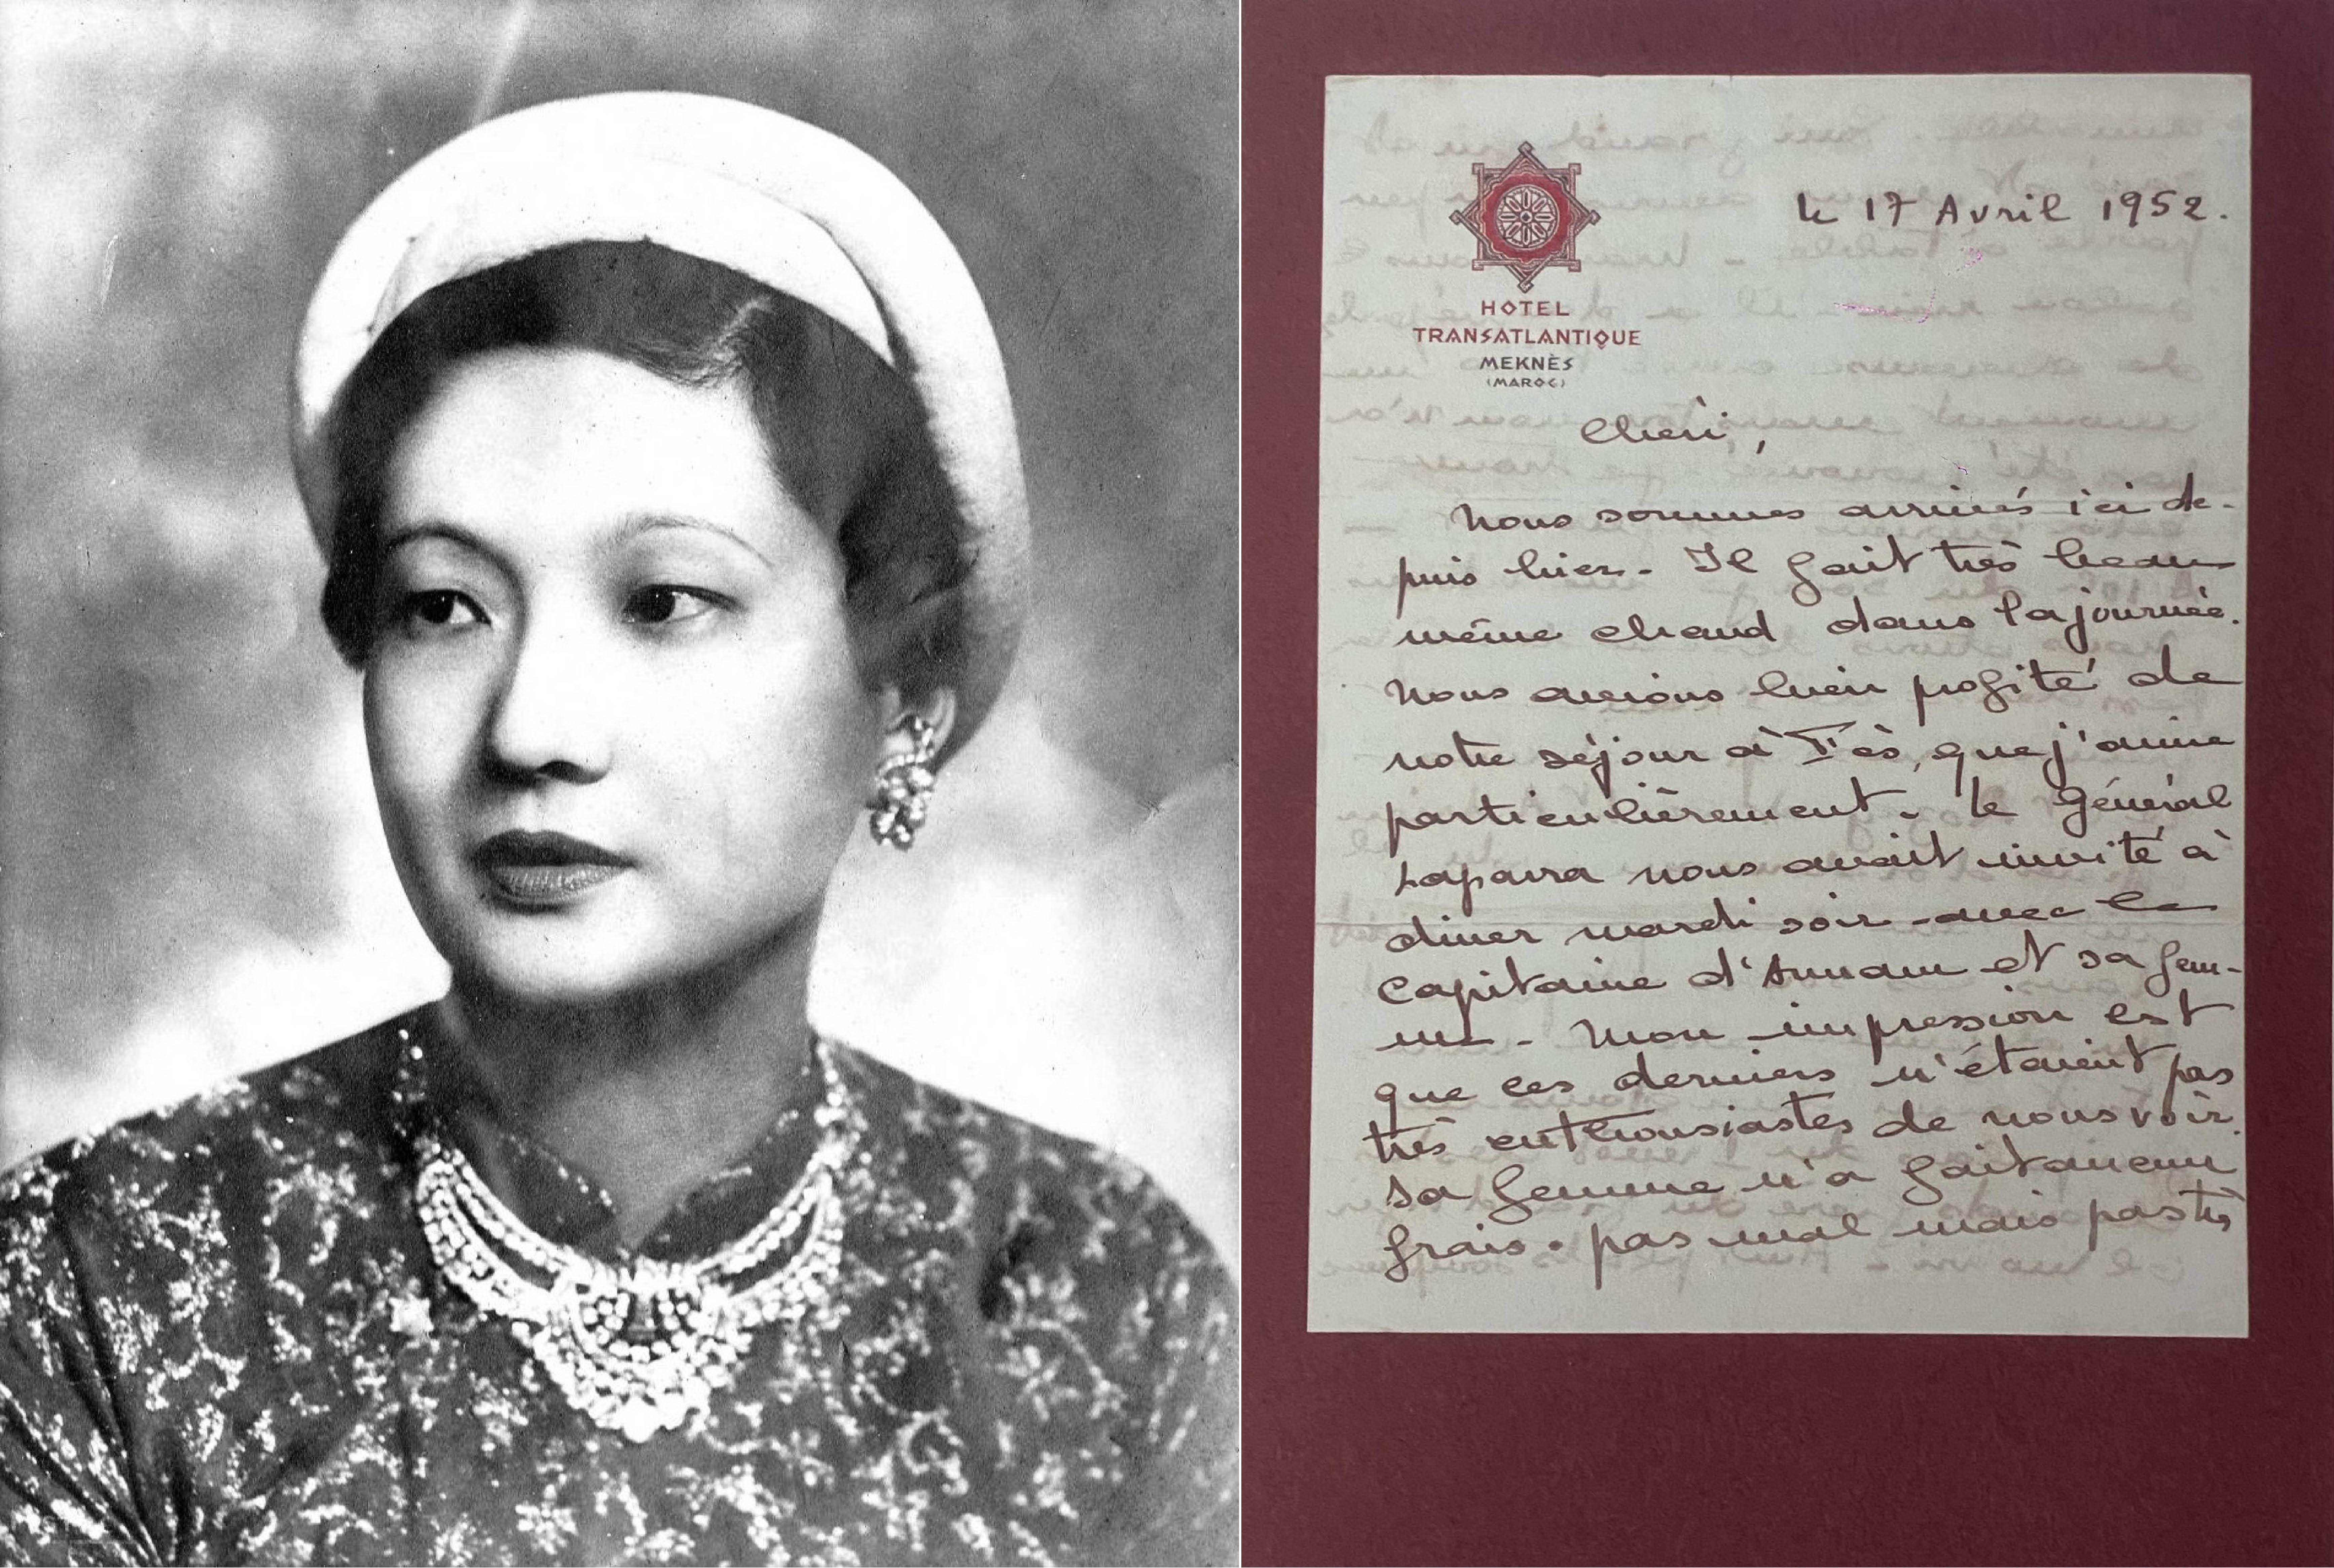 le 17 Avril 1952.
HOTEL
TRANSATLANTIQUE
MEKNÈS
(MAROC)
Chéri,
Nous sommes arrivés ici de-
puis hier. Il fait très beau
même chaud dans la journée.
Nous avions bien profité de
notre séjour à Fès, que j'aime
particulièrement. Le Général
Laparra nous avait invité à
diner mardi soir avec le
Capitaine d'Annam et sa fem-
me. Mon impression est
que ces derniers n'étaient pas
très enthousiastes de nous voir.
Sa femme n'a fait aucun
frais. pas mal mais pas très